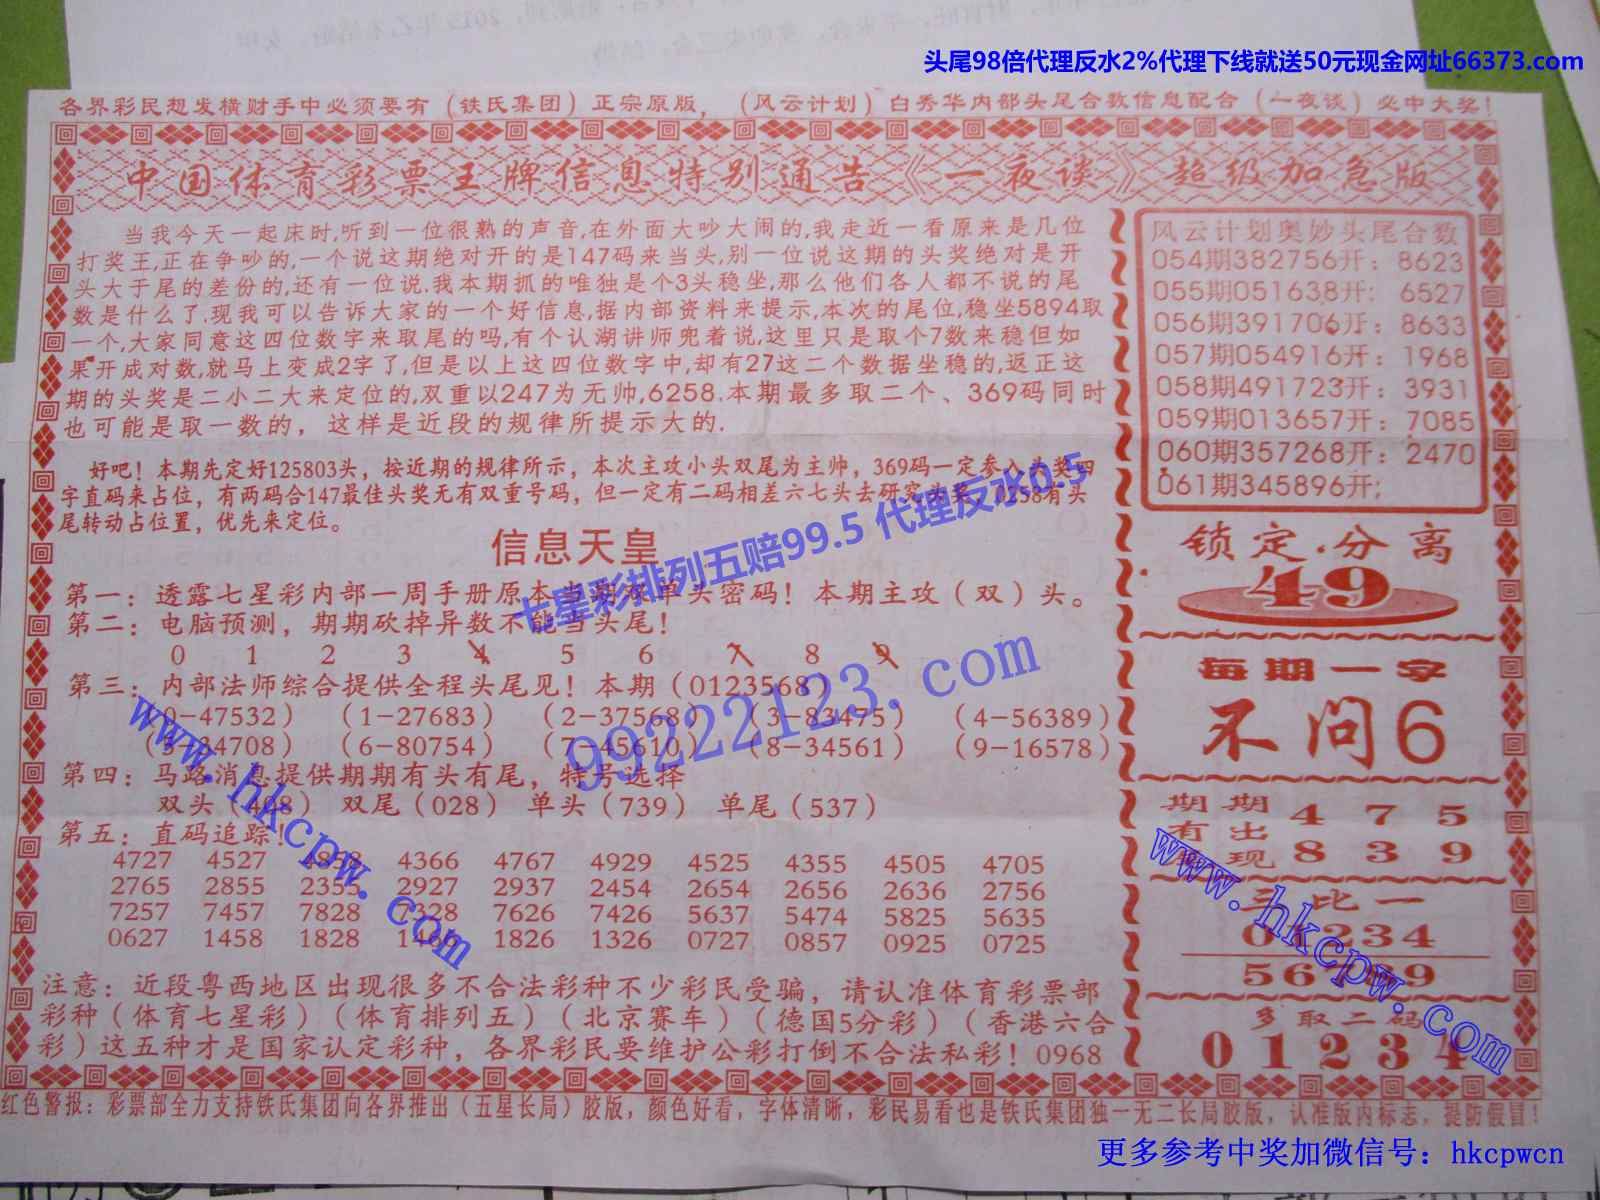 头尾98倍代理反水2%代理下线就送50元现金网址66373.com
各界彩民想发横财手中必须要有（铁氏集团）正宗原版，（风云计划）白秀华内部头尾合数信息配合（一夜谈）必中大奖！
中国体育彩票王牌信息特别通告《一夜谈》超级加急版
当我今天一起床时,听到一位很熟的声音,在外面大吵大闹的,我走近一看原来是几位
打奖王,正在争吵的,一个说这期绝对开的是147码来当头,别一位说这期的头奖绝对是开
头大于尾的差份的,还有一位说.我本期抓的唯独是个3头稳坐,那么他们各人都不说的尾
数是什么了.现我可以告诉大家的一个好信息,据内部资料来提示,本次的尾位,稳坐5894取
一个,大家同意这四位数字来取尾的吗,有个认湖讲师兜着说,这里只是取个7数来稳但如
果开成对数,就马上变成2字了,但是以上这四位数字中,却有27这二个数据坐稳的,返正这
期的头奖是二小二大来定位的,双重以247为无帅,6258.本期最多取二个、369码同时
也可能是取一数的，这样是近段的规律所提示大的.
好吧！本期先定好125803头，按近期的规律所示，本次主攻小头双尾为主帅，369码一定参入头奖四
字直码来占位，有两码合147最佳头奖无有双重号码，但一定有二码相差六七头去研究头奖，0258有头
尾转动占位置，优先来定位。
七星彩排列五赔99.5 代理反水0.5
信息天皇
第一：透露七星彩内部一周手册原本当期双单头密码！本期主攻（双）头。
第二：电脑预测，期期砍掉异数不能当头尾！
0 1 2 3 4 5 6 7 8 9
第三：内部法师综合提供全程头尾见！本期（0123568）
（0-47532）（1-27683）（2-37568）（3-83475）（4-56389）
（5-24708）（6-80754）（7-45610）（8-34561）（9-16578）
第四：马路消息提供期期有头有尾，特号选择
双头（408） 双尾（028） 单头（739） 单尾（537）
第五：直码追踪！
4727 4527 4366 4767 4929 4525 4355 4505 4705
2765 2855 2355 2927 2937 2454 2654 2656 2636 2756
7257 7457 7828 7328 7626 7426 5637 5474 5825 5635
0627 1458 1828 1826 1326 0727 0857 0925 0725
注意：近段粤西地区出现很多不合法彩种不少彩民受骗，请认准体育彩票部
彩种（体育七星彩）（体育排列五）（北京赛车）（德国5分彩）（香港六合
彩）这五种才是国家认定彩种，各界彩民要维护公彩打倒不合法私彩！0968
风云计划奥妙头尾合数
054期382756开：8623
055期051638开：6527
056期391706开：8633
057期054916开：1968
058期491723开：3931
059期013657开：7085
060期357268开：2470
061期345896开；
锁定.分离
49
每期一字
不问6
期期 4 7 5
有出
现 8 3 9
三比一
01234
56789
多取二码
0 1 2 3 4
红色警报：彩票部全力支持铁氏集团向各界推出（五星长局）胶版，颜色好看，字体清晰，彩民易看也是铁氏集团独一无二长局胶版，认准版内标志，提防假冒！
99222123.com
www.hkcpw.com
www.hkcpw.com
更多参考中奖加微信号：hkcpwcn